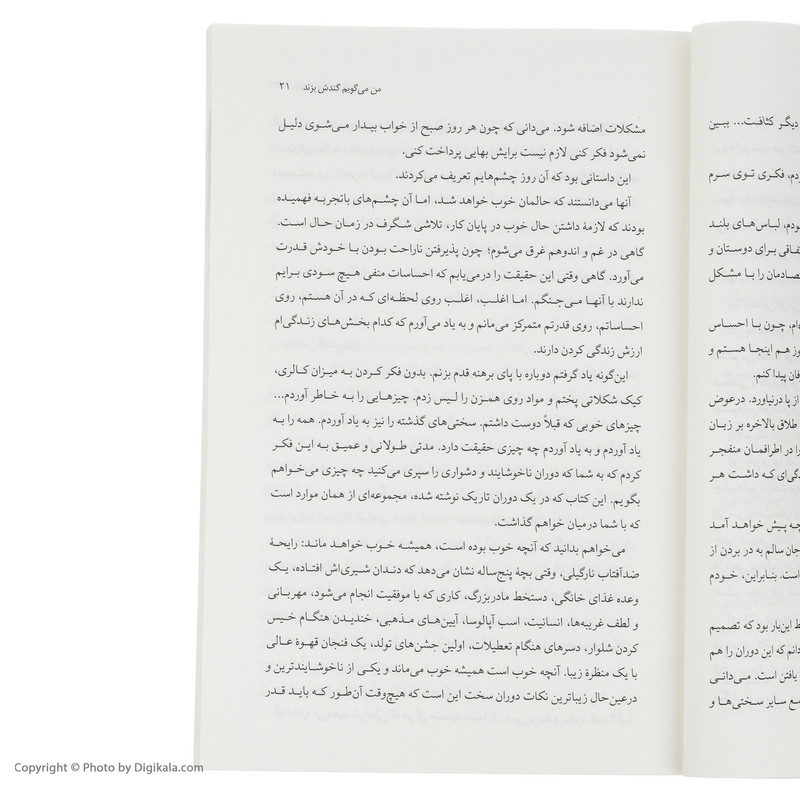 من می‌گویم گندش بزند ۲۱
مشکلات اضافه شود. می‌دانی که چون هر روز صبح از خواب بیدار می‌شوی دلیل
نمی‌شود فکر کنی لازم نیست برایش بهایی پرداخت کنی.
این داستانی بود که آن روز چشم‌هایم تعریف می‌کردند.
آنها می‌دانستند که حالمان خوب خواهد شد، اما آن چشم‌های باتجربه فهمیده
بودند که لازمهٔ داشتن حال خوب در پایان کار، تلاشی شگرف در زمان حال است.
گاهی در غم و اندوهم غرق می‌شوم؛ چون پذیرفتن ناراحت بودن با خودش قدرت
می‌آورد. گاهی وقتی این حقیقت را درمی‌یابم که احساسات منفی هیچ سودی برایم
ندارند با آنها می‌جنگم. اما اغلب، اغلب روی لحظه‌ای که در آن هستم، روی
احساساتم، روی قدرتم متمرکز می‌مانم و به یاد می‌آورم که کدام بخش‌های زندگی‌ام
ارزش زندگی کردن دارند.
این‌گونه یاد گرفتم دوباره با پای برهنه قدم بزنم. بدون فکر کردن به میزان کالری،
کیک شکلاتی پختم و مواد روی همزن را لیس زدم. چیزهایی را به خاطر آوردم...
چیزهای خوبی که قبلاً دوست داشتم. سختی‌های گذشته را نیز به یاد آوردم. همه را به
یاد آوردم و به یاد آوردم چه چیزی حقیقت دارد. مدتی طولانی و عمیق به این فکر
کردم که به شما که دوران ناخوشایند و دشواری را سپری می‌کنید چه چیزی می‌خواهم
بگویم. این کتاب که در یک دوران تاریک نوشته شده، مجموعه‌ای از همان موارد است
که با شما درمیان خواهم گذاشت.
می‌خواهم بدانید که آنچه خوب بوده است، همیشه خوب خواهد ماند: رایحهٔ
ضدآفتاب نارگیلی، وقتی بچهٔ پنج‌ساله نشان می‌دهد که دندان شیری‌اش افتاده، یک
وعده غذای خانگی، دستخط مادربزرگ، کاری که با موفقیت انجام می‌شود، مهربانی
و لطف غریبه‌ها، انسانیت، اسب آپالوسا، آیین‌های مذهبی، خندیدن هنگام خیس
کردن شلوار، دسرهای هنگام تعطیلات، اولین جشن‌های تولد، یک فنجان قهوهٔ عالی
با یک منظرهٔ زیبا. آنچه خوب است همیشه خوب می‌ماند و یکی از ناخوشایندترین و
درعین‌حال زیباترین نکات دوران سخت این است که هیچ‌وقت آن‌طور که باید قدر
دیگر کثافت... ببین
دم، فکری توی سرم
ودم، لباس‌های بلند
فاقی برای دوستان و
صادمان را با مشکل
ام، چون با احساس
وز هم اینجا هستم و
فان پیدا کنم.
از پا درنیاورد. درعوض
طلاق بالاخره بر زبان
را در اطرافمان منفجر
گی‌ای که داشت هر
چه پیش خواهد آمد
جان سالم به در بردن از
است. بنابراین، خودم
ط این‌بار بود که تصمیم
دانم که این دوران را هم
یافتن است. می‌دانی
مع سایر سختی‌ها و
Copyright © Photo by Digikala.com